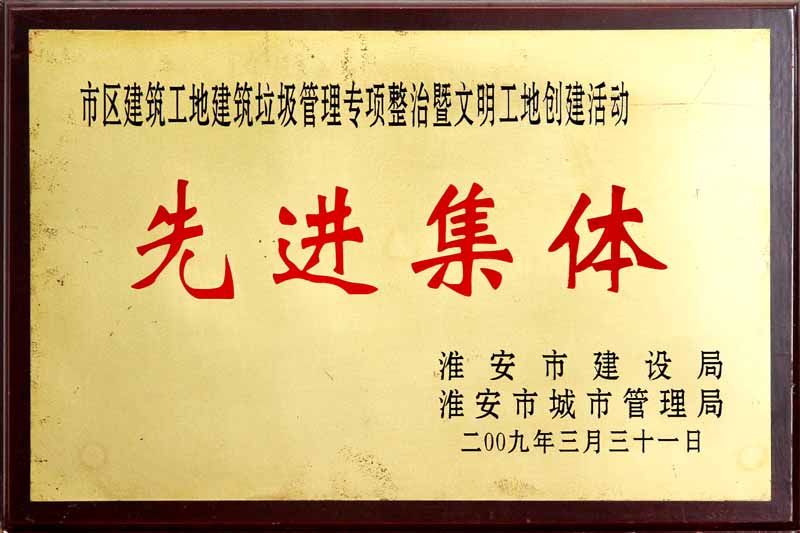 市区建筑工地建筑垃圾管理专项整治暨文明工地创建活动
先进集体
淮安市建设局
淮安市城市管理局
二00九年三月三十一日